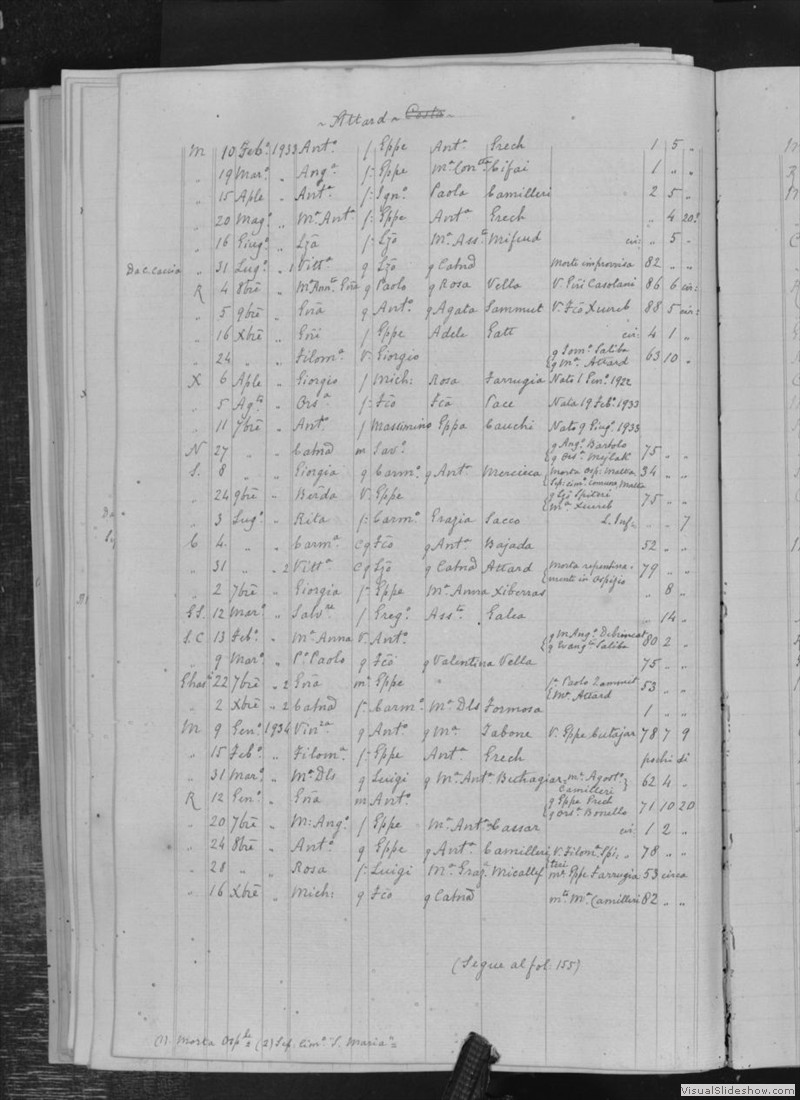 ~ Attard ~ Costa ~
M 10 Feb.º 1933 Ant.ª f: Eppe Ant.ª Grech 1 5 "
" 19 Mar.º " Ang.ª f: Eppe M.ª Con.tta Cifai 1 " "
" 15 Aple " Ant.ª f: Ign.º Paola Camilleri 2 5 "
" 20 Mag.º " M.ª Ant.ª f: Eppe Ant.ª Grech " 4 20?
" 16 Giug.º " Ljã f: Ljõ M.ª Ass.ta Mifsud cir: " 5 "
Da c. caccia " 31 Lug.º " 1 Vitt.ª q Ljõ q Catnã Morte improvvisa 82 " "
R 4 8bre " M.ª Ann.ta Gña q Paolo q Rosa Vella V. Gñi Casolani 86 6 cir:
" 5 9bre " Gña q Ant.º q Agata Sammut V. Fcõ Xuereb 88 5 cir:
" 16 Xbre " Gñi f Eppe Adele Gatt cir: 4 1 "
" 24 " " Filom.ª V: Giorgio q Tom.º Saliba q M.ª Attard 63 10 "
X 6 Aple " Giorgio f Mich: Rosa Farrugia Nato 1 Gen.º 1922
" 5 Ag.to " Ors.ª f: Fcõ Fcã Pace Nata 19 Feb.º 1933
" 11 7bre " Ant.º f Massimino Eppa Cauchi Nato 9 Giug.º 1933
N 27 " " Catnã m Sav.º q Ang.º Bartolo q Ors.ª Mejlak 75 " "
S. 8 " " Giorgia q Carm.º q Ant.ª Mercieca Morta Osp: Malta Sep: cim.º Comune, Malta 34 " "
" 24 9bre " Berda V. Eppe q Gjõ Spiteri M.ª Xuereb 75 " "
" 3 Lug.º " Rita f: Carm.º Grazia Sacco S. Inf. " " 7
C 4 " " Carm.ª C q Fcõ q Ant.ª Bajada 52 " "
" 31 " " 2 Vitt.ª C q Ljõ q Catnã Attard Morta repentina-mente in Ospizio 79 " "
" 2 7bre " Giorgia f: Eppe M.ª Anna Xiberras " 8 "
GS. 12 Mar.º " Salv.re f Greg.º Ass.ta Galea " 14 "
S.C 13 Feb.º " M.ª Anna V. Ant.º q M. Ang.º Debrincat q Evang.ta Saliba 80 2 "
" 9 Mar.º " P.º Paolo q Fcõ q Valentina Vella 75 " "
Ghas.ri 22 7bre " 2 Gña m. Eppe f. Paolo Zammit M.ª Attard 53 " "
" 2 Xbre " 2 Catnã f: Carm.º M.ª Dls Formosa 1 " "
M 9 Gen.º 1934 Vin.za q Ant.º q M.ª Tabone V. Eppe Cutajar 78 7 9
" 15 Feb.º " Filom.ª f: Eppe Ant.ª Grech pochi di
" 31 Mar.º " M.ª Dls q Luigi q M.ª Ant.ª Buttagiar m. Agost.º Camilleri 62 4 "
R 12 Gen.º " Gña m Ant.º q Eppe Grech q Ors.ª Bonello 71 10 20
" 20 7bre " M: Ang.ª f Eppe M.ª Ant.ª Cassar cir: 1 2 "
" 24 8bre " Ant.ª q Eppe q Ant.ª Camilleri V. Filom.ª Spi-teri " 78 " "
" 28 " " Rosa f: Luigi M.ª Graz.ª Micallef m. Eppe Farrugia 53 circa
" 16 Xbre " Mich: q Fcõ q Catnã m. M.ª Camilleri 82 " "
(Segue al fol: 155)
(1). Morta Osp.le (2) Sep. cim.º S. Maria
VisualSlideshow.com